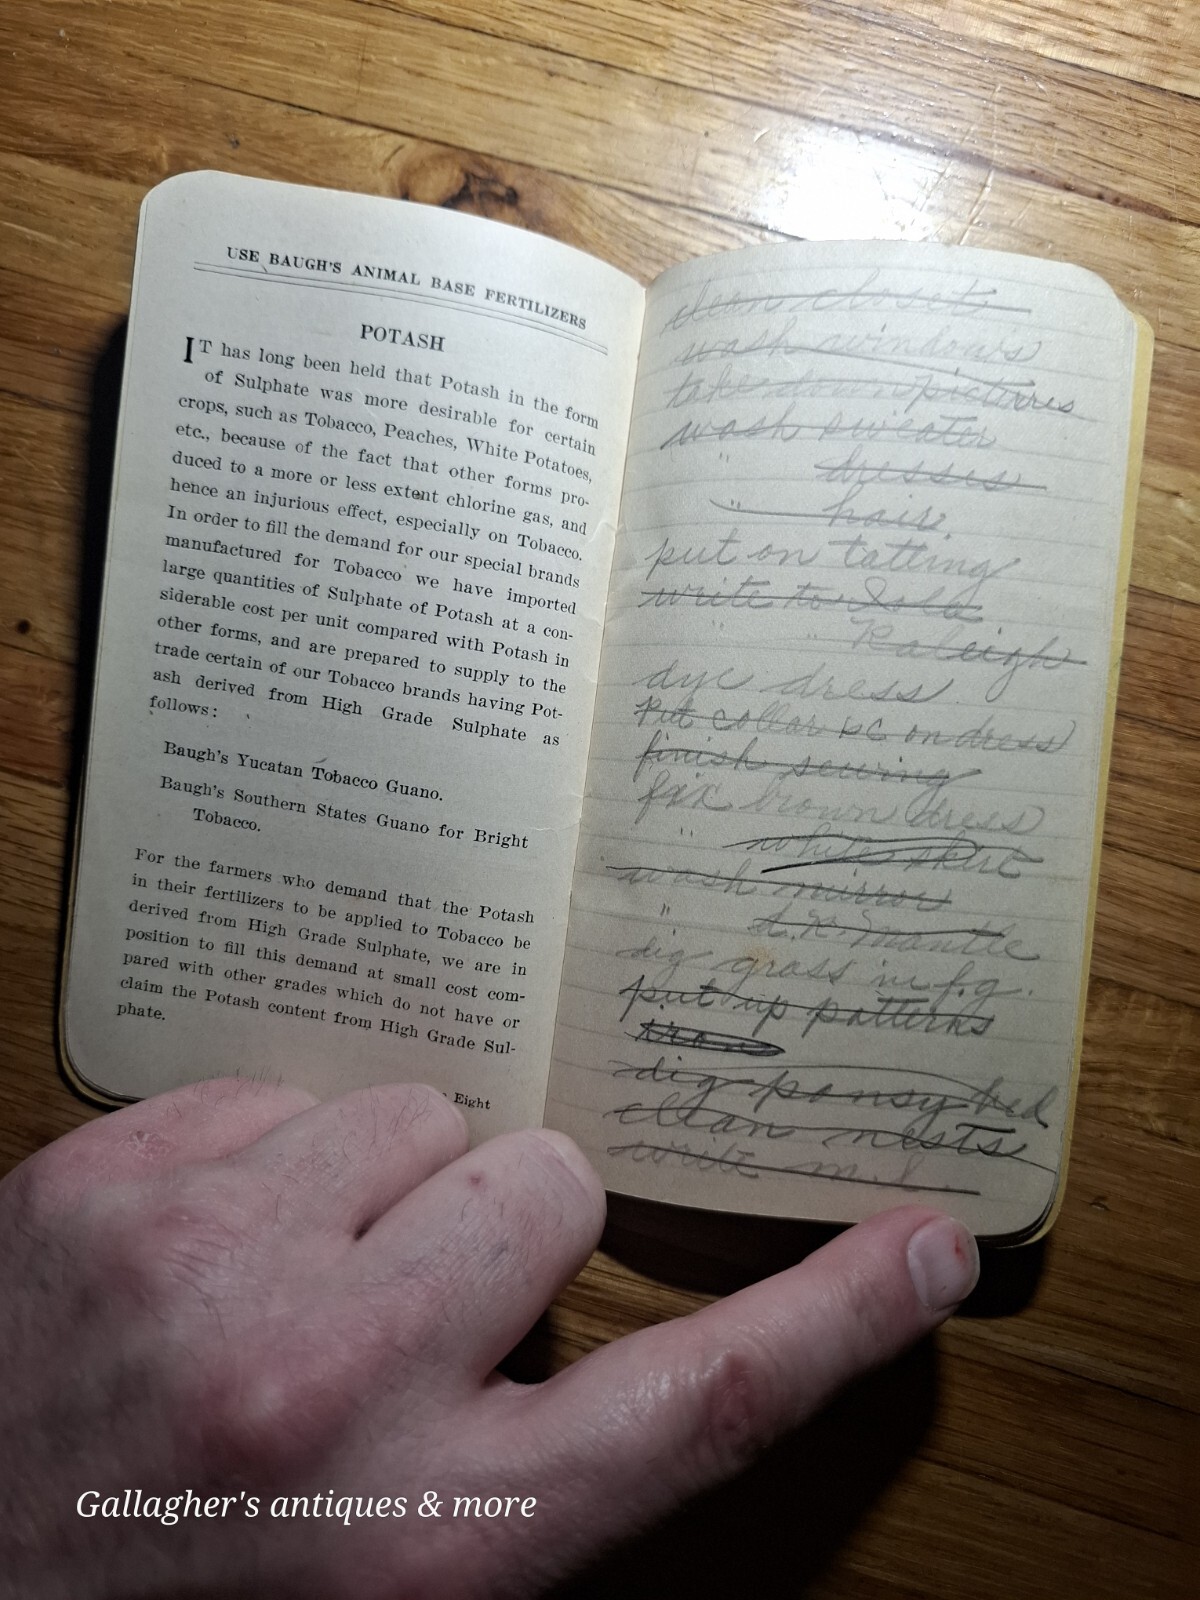 USE BAUGH'S ANIMAL BASE FERTILIZERS
POTASH
IT has long been held that Potash in the form
of Sulphate was more desirable for certain
crops, such as Tobacco, Peaches, White Potatoes,
etc., because of the fact that other forms pro-
duced to a more or less extent chlorine gas, and
hence an injurious effect, especially on Tobacco.
In order to fill the demand for our special brands
manufactured for Tobacco we have imported
large quantities of Sulphate of Potash at a con-
siderable cost per unit compared with Potash in
other forms, and are prepared to supply to the
trade certain of our Tobacco brands having Pot-
ash derived from High Grade Sulphate as
follows:
Baugh's Yucatan Tobacco Guano.
Baugh's Southern States Guano for Bright
Tobacco.
For the farmers who demand that the Potash
in their fertilizers to be applied to Tobacco be
derived from High Grade Sulphate, we are in
position to fill this demand at small cost com-
pared with other grades which do not have or
claim the Potash content from High Grade Sul-
phate.
Eight
clean closet
wash windows
take down pictures
wash sweater
" dresses
" hair
put on tatting
write to Iola
" " Raleigh
dye dress
Put collar on dress
finish sewing
fix brown dress
" white skirt
wash mirror
" Mantle
dig grass in f.g.
put up patterns
iron
dig pansy bed
clean nests
write m.l.
Gallagher's antiques & more